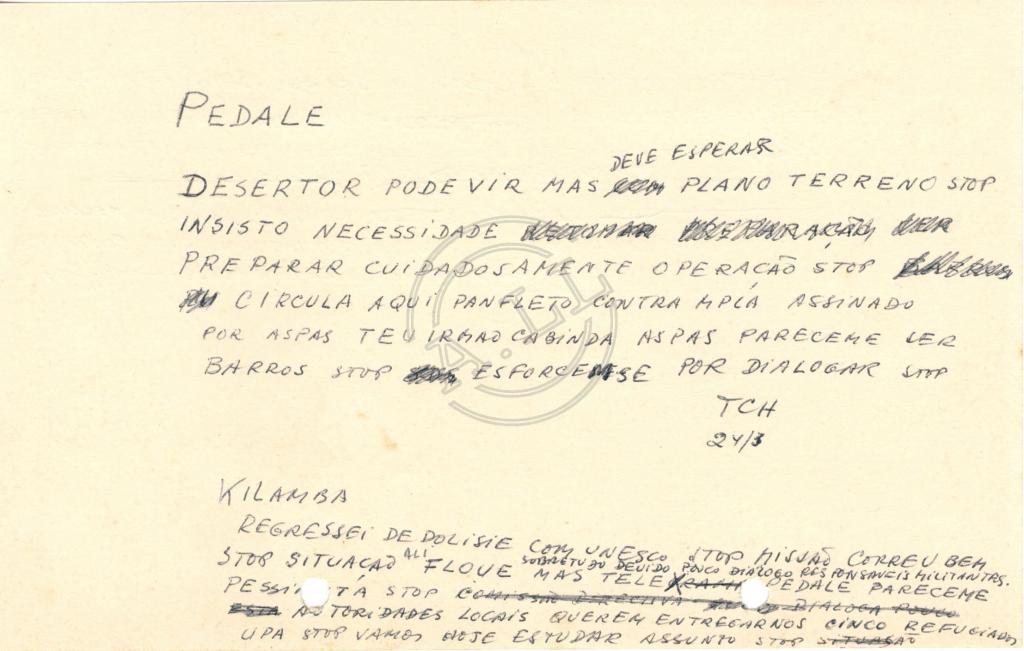 PEDALE
DEVE ESPERAR
DESERTOR PODE VIR MAS PLANO TERRENO STOP
INSISTO NECESSIDADE
PREPARAR CUIDADOSAMENTE OPERAÇÃO STOP
CIRCULA AQUI PANFLETO CONTRA MPLA ASSINADO
POR ASPAS TEU IRMAO CABINDA ASPAS PARECEME SER
BARROS STOP ESFORCEMSE POR DIALOGAR STOP
TCH
24/3
A.LL
KILAMBA
REGRESSEI DE DOLISIE COM UNESCO STOP MISSÃO CORREU BEM
ALI SOBRETUDO DEVIDO POUCO DIALOGO RESPONSAVEIS MILITANTES.
STOP SITUAÇÃO FLOUE MAS TELEGRAMA PEDALE PARECEME
PESSI TÁ STOP COMISSÃO DIRECTIVA DIALOGA POUCO
ESTA AUTORIDADES LOCAIS QUEREM ENTREGARNOS CINCO REFUGIADOS
UPA STOP VAMOS HOJE ESTUDAR ASSUNTO STOP SITUAÇÃO